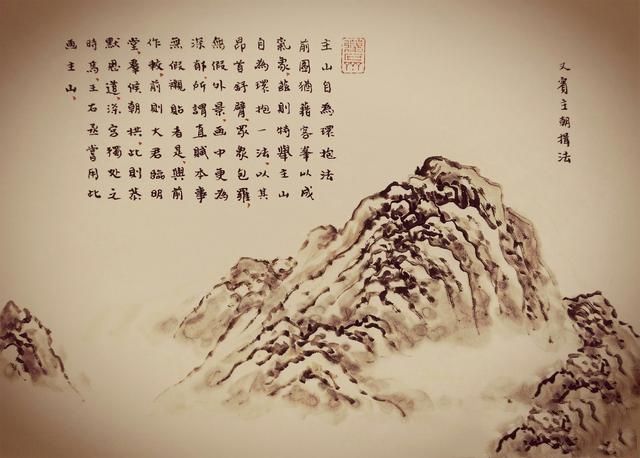 又賓主朝揖法
主山自為環抱法
前圖猶藉客峯以成
氣象，茲則特舉主山
自為環抱一法，以其
昂首舒臂，眾象包羅，
無假外景，畫中更為
深郁，所謂直賦本事
無假襯貼者是，與前
作較，前則大君臨明
堂，羣候朝拱，此則恭
默思道，深宮獨處之
時焉，王右丞嘗用此
画主山，